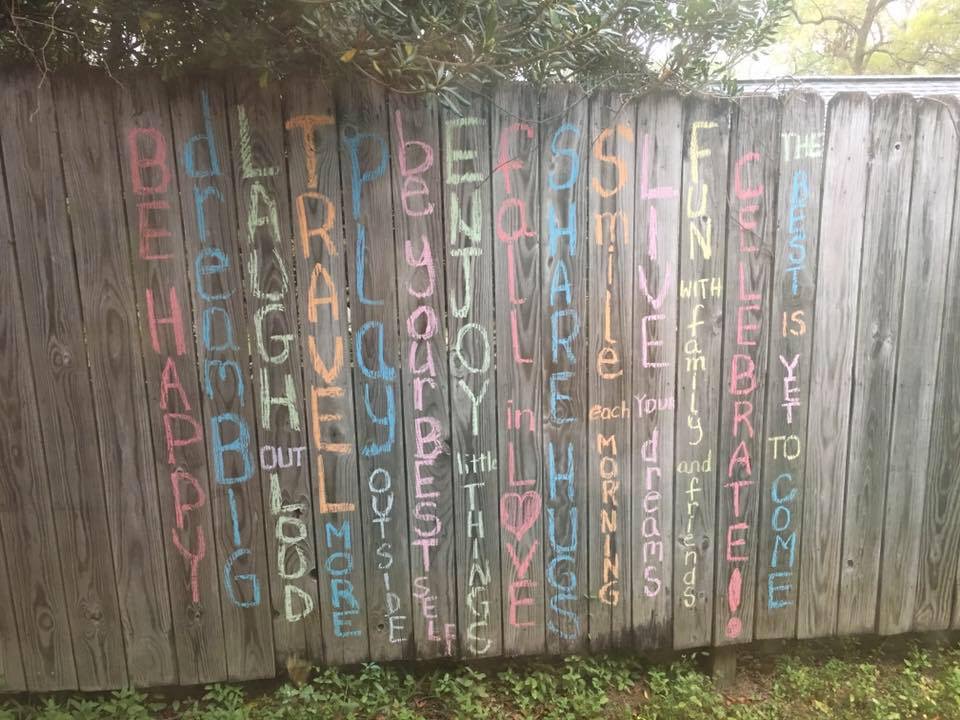 BE HAPPY
dream BIG
LAUGH OUT LOUD
TRAVEL MORE
pLay OUTSIDE
be your BEST SELF
ENJOY little THINGS
faLL in LOVE
SHARE HUGS
Smile each MORNING
LIVE YOUR dreams
FUN WITH family and friends
CELEBRATE!
THE BEST IS YET TO COME